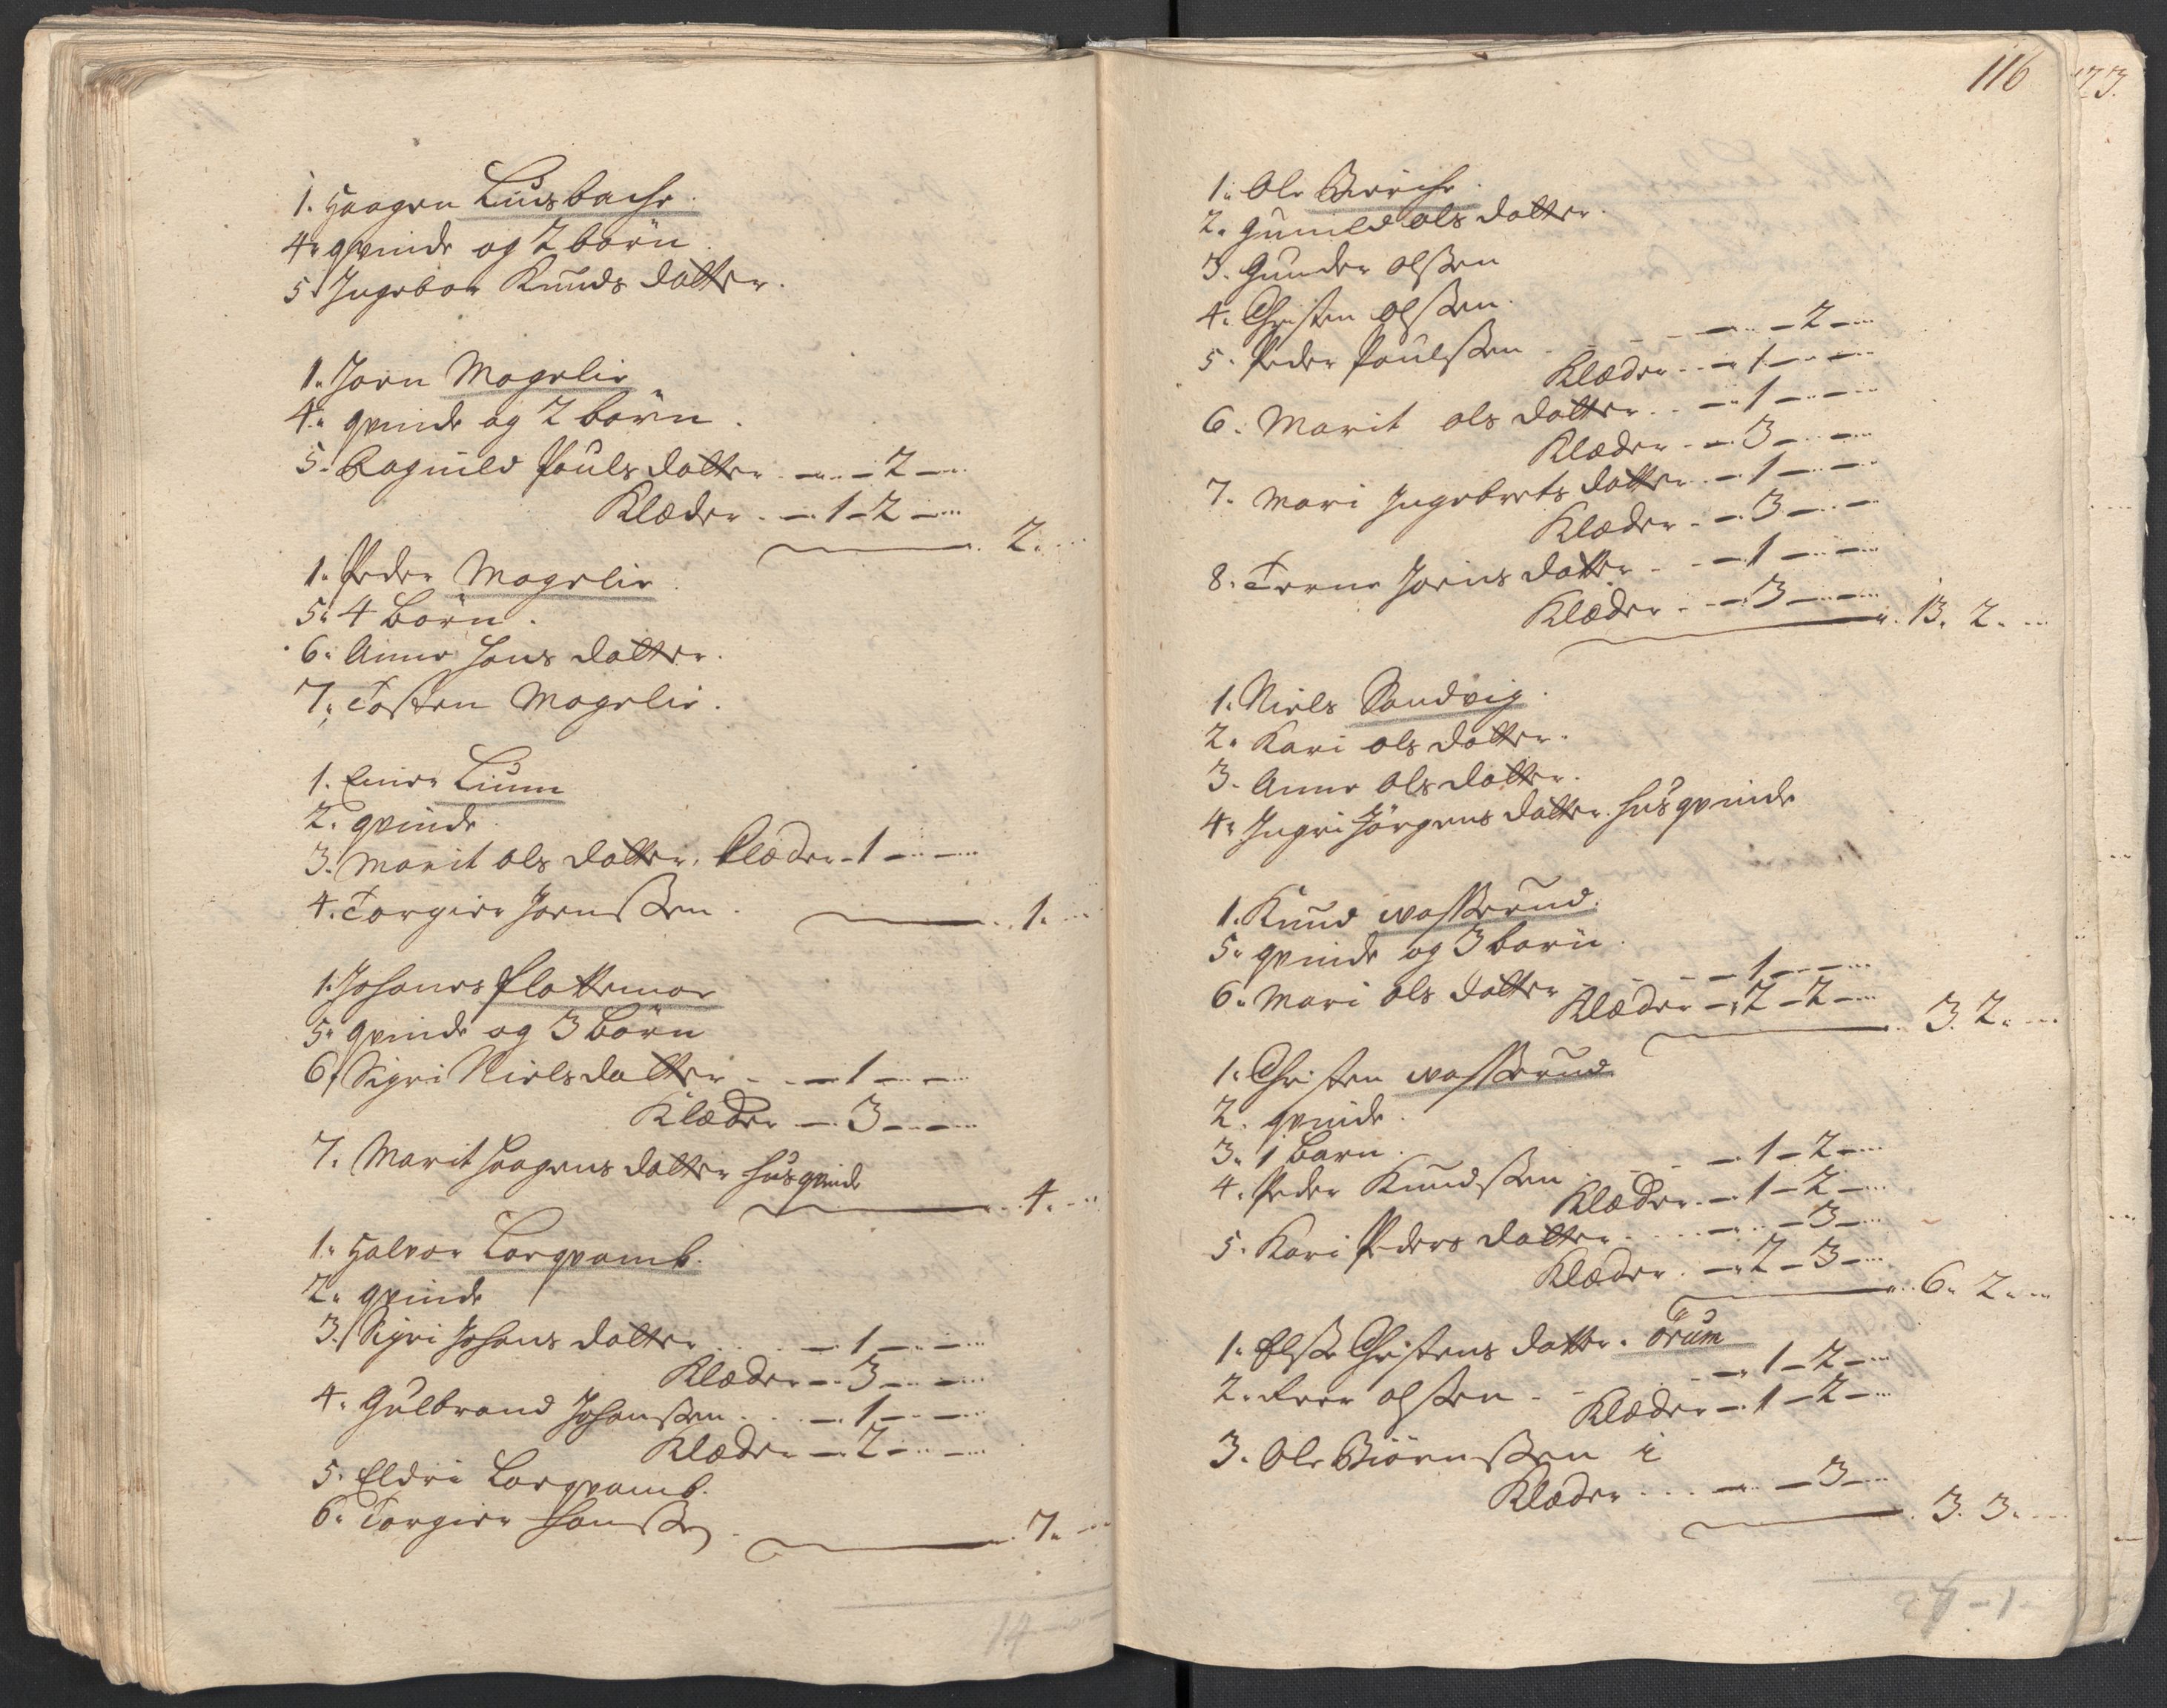 1. Haagen Liusbache.
4. qvinde og 2 börn.
5. Ingebor Knuds datter.
1. Joen Mogelie
4. qvinde og 2 börn.
5. Ragnild Pouls datter. — . . — 2 — . .
Klæder. — 1 — 2 — . .
2. . .
1. Peder Mogelie.
5. 4 Börn.
6. Anne Hans datter.
7. Tosten Mogelie.
1. Einer Lium
2. qvinde.
3. Marit ols datter. Klæder — 1 — . . — . .
4. Torgier Joensen.
1. . .
1. Johanes Plattemoe
5. qvinde og 3 Börn
6. Sigri Niels datter . — 1 — . . — . .
Klæder — 3 — . . — . .
7. Marit Haagens datter husqvinde
4. . .
1. Halvor Lorqvamb.
2. qvinde
3. Sigri Johans datter . . — 1 — . . — . .
Klæder — 3 — . . — . .
4. Gulbrand Johansen . . — 1 — . . — . .
Klæder — 2 — . . — . .
5. Eldri Lorqvamb.
6. Torgier Hansen.
7. . .
14 — . . —
116
173.
1. Ole
2. Gunild ols datter.
3. Gunder olsen
4. Christen olsen.
5. Peder Poulsen . — . . — 2 — . .
Klæder . . — 1 — . . —
6. Marit ols datter . . — 1 — . . —
Klæder . — 3 — . . —
7. Mari Ingebrets datter . — 1 — . . —
Klæder . — 3 — . . —
8. Terne Joens datter . . — 1 — . . —
Klæder . — 3 — . . —
13. 2. . .
1. Niels Sandvig.
2. Kari ols datter.
3. Anne Ols datter.
4. Ingri Jörgens datter husqvinde
1. Knud wasserud.
5. qvinde og 3 börn.
6. Mari ols datter . — — 1 — . . — . .
Klæder — 2 — 2 — . .
3. 2. . .
1. Christen wasserud
2. qvinde.
3. 1 Barn.
4. Peder Knudsen . — — 1 — 2 — . .
Klæder. — 1 — 2 — . .
5. Kari Peders datter . . — . . — 3 — . .
Klæder . — 2 — 3 — . .
6. 2. . .
1. Else Christens datter. Örum
2. Iver olsen . — — 1 — 2 — . .
Klæder — 1 — 2 — . .
3. Ole Biörnsen i
Klæder . . . — . . — 3 — . .
3. 3. . .
27 — 1 —